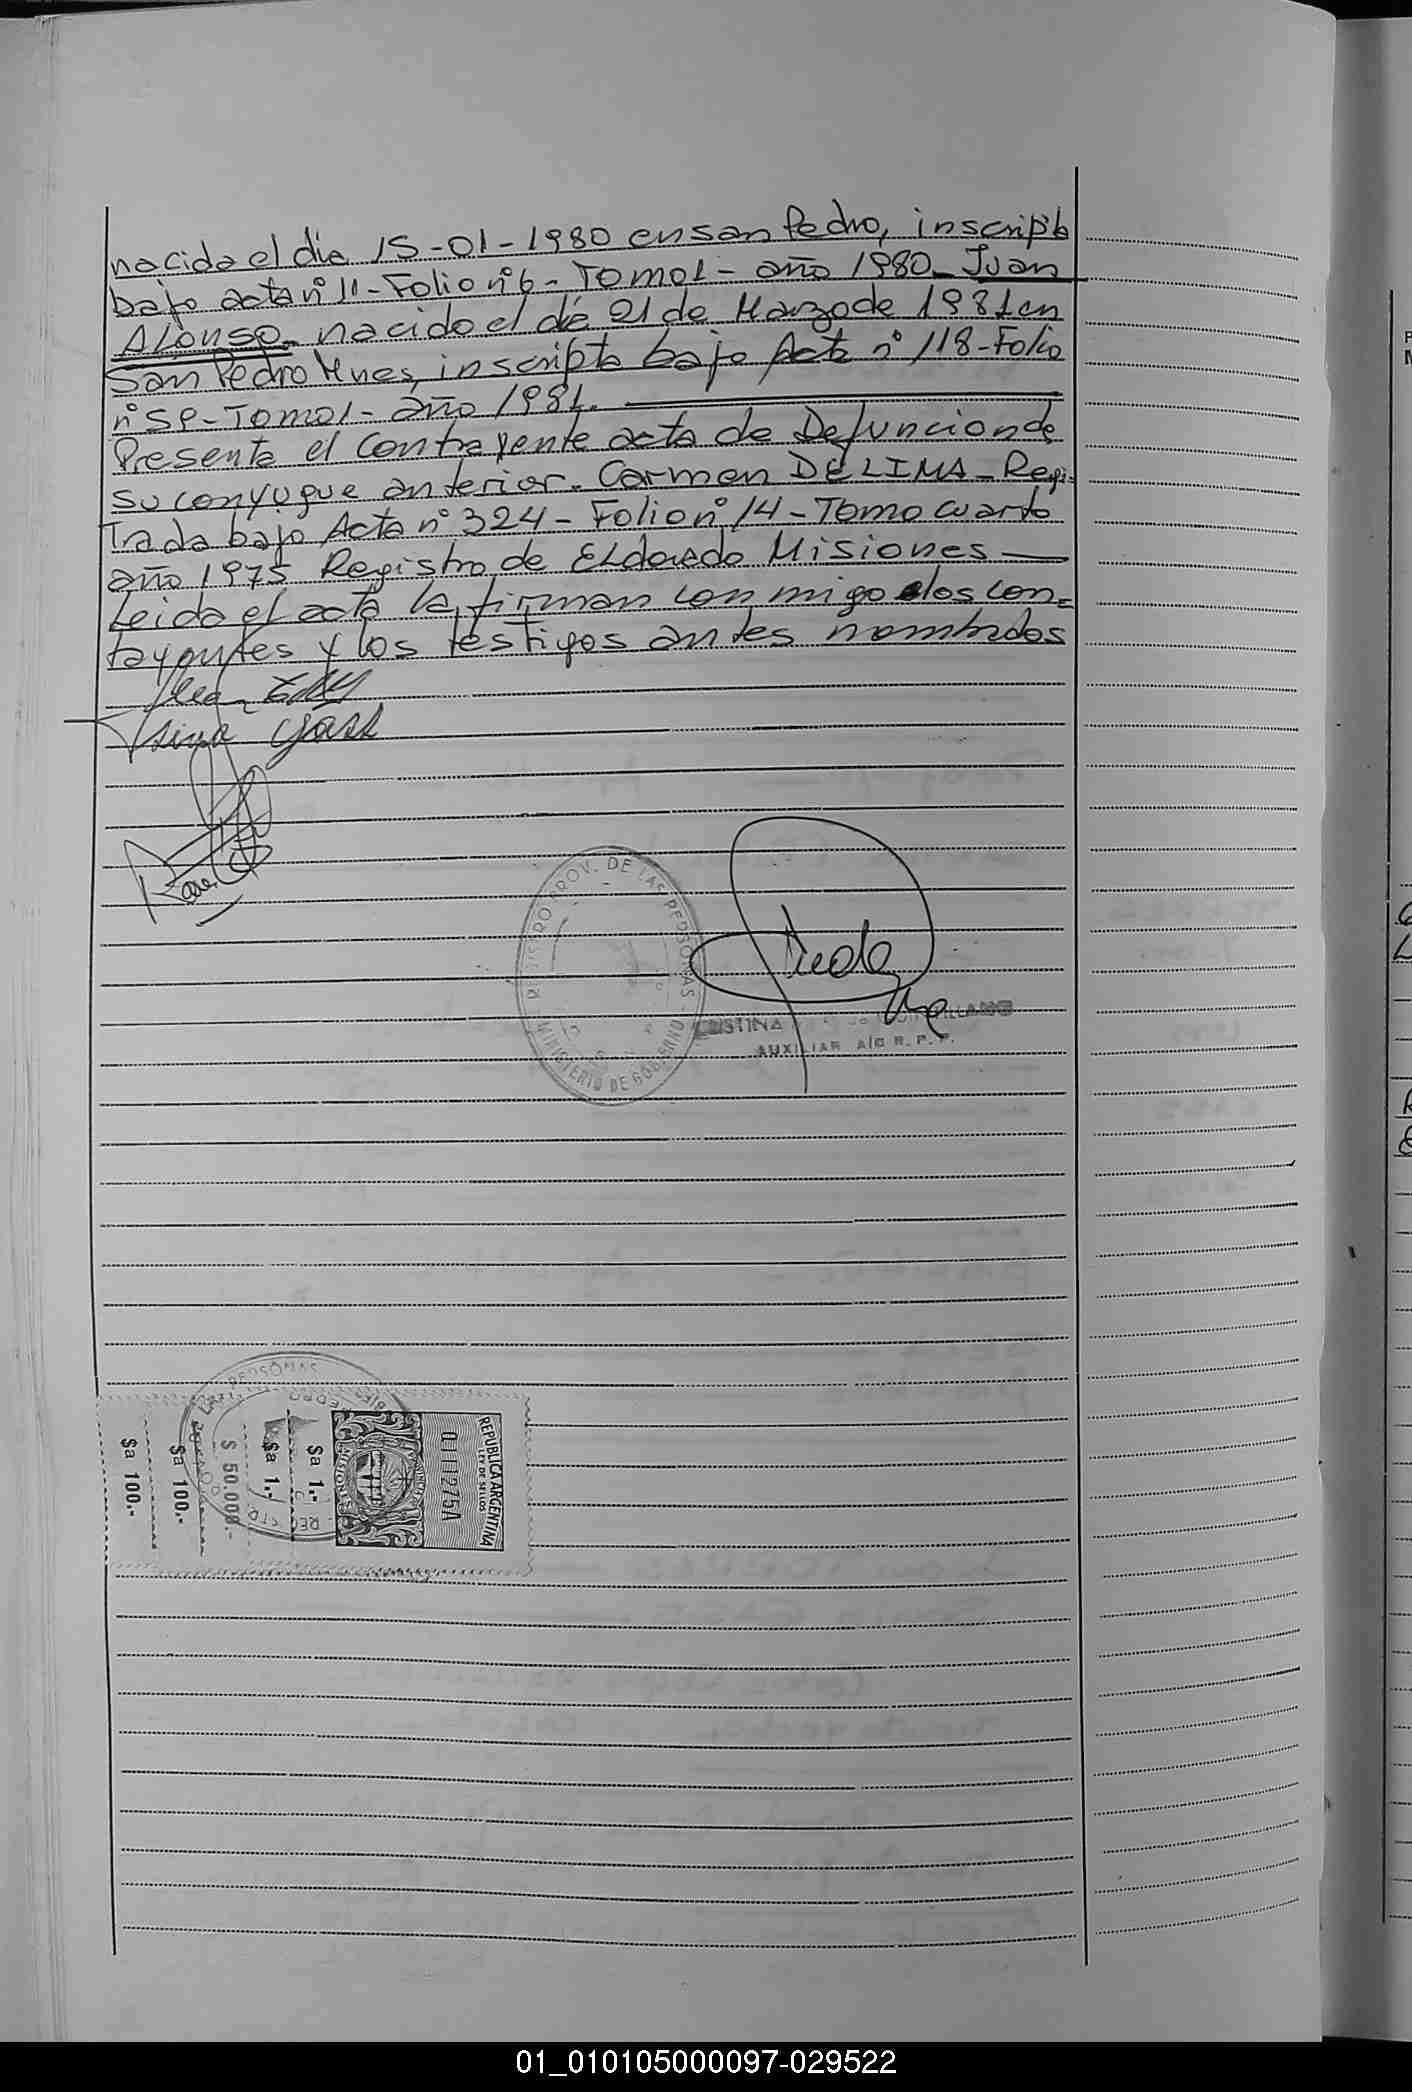 nacido el dia 15-01-1980 en san Pedro, inscripto
bajo acta n° 11-Folio n° 6- Tomo 1- año 1980- Juan
Alonso- nacido el dia 21 de Marzo de 1981 en
San Pedro Mnes, inscripto bajo Acta n° 118-Folio
n° 59-Tomo 1- año 1981.
Presenta el contrayente acta de Defuncion de
su conyugue anterior. Carmen DE LIMA- Regis-
trada bajo Acta n° 324- Folio n° 14-Tomo cuarto
año 1975 Registro de ELdorado Misiones
Leida el acta la firman con migo los con=
trayentes y los testigos antes nombrados
REGISTRO PROV. DE LAS PERSONAS
MINISTERIO DE GOBIERNO
CRISTINA
AUXILIAR A/C R. P. P.
REPUBLICA ARGENTINA
LEY DE SELLOS
0111275A
PROVINCIA
MISIONES
$a 1.-
$a 1.-
$ 50.000.-
$a 100.-
$a 100.-
01_010105000097-029522